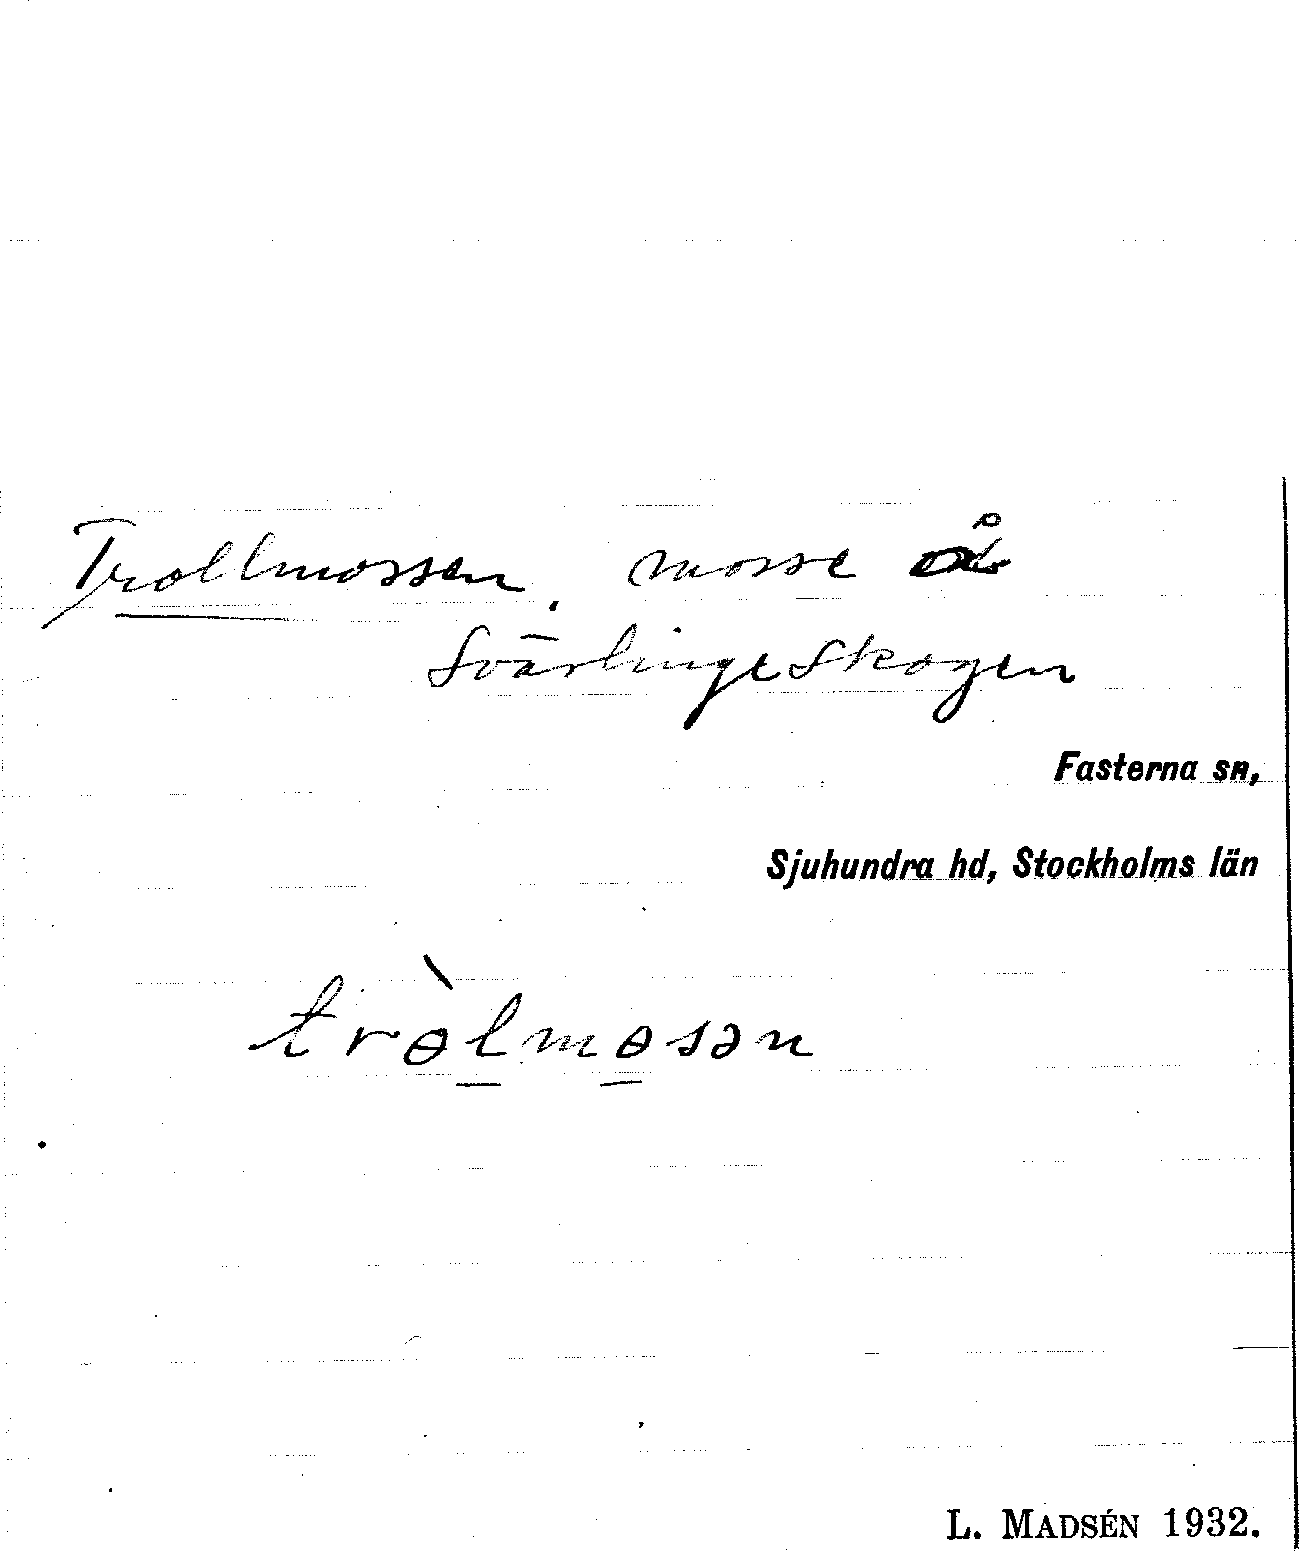 Trollmossen, mosse å
Svärlingeskogen
Fasterna sn,
Sjuhundra hd, Stockholms län
trɵ̀lmɵsən
L. MADSÉN 1932.